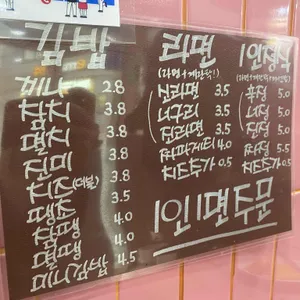 김밥
미니 2.8
참치 3.8
멸치 3.8
진미 3.8
치즈(더블) 3.5
땡초 3.5
참땡 4.0
멸땡 4.0
미니김밥 4.5
라면
(라면+계란탁!)
진라면 3.5
너구리 3.5
짬라면 3.5
짜파게티 4.0
치즈추가 0.5
1인정식
5.0
5.0
5.0
5.5
치즈추가 0.5
1인1면주문